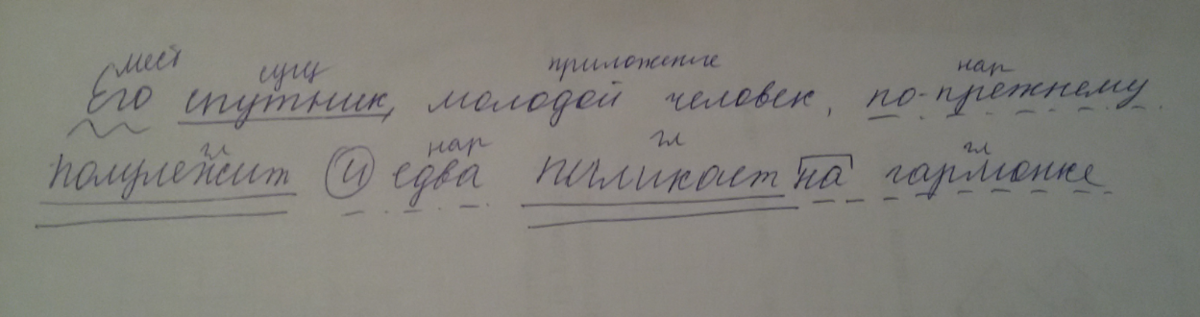 мест сущ приложение нар
Его спутник, молодой человек, по-прежнему
гл нар гл гл
полулежит и едва пиликает на гармонке